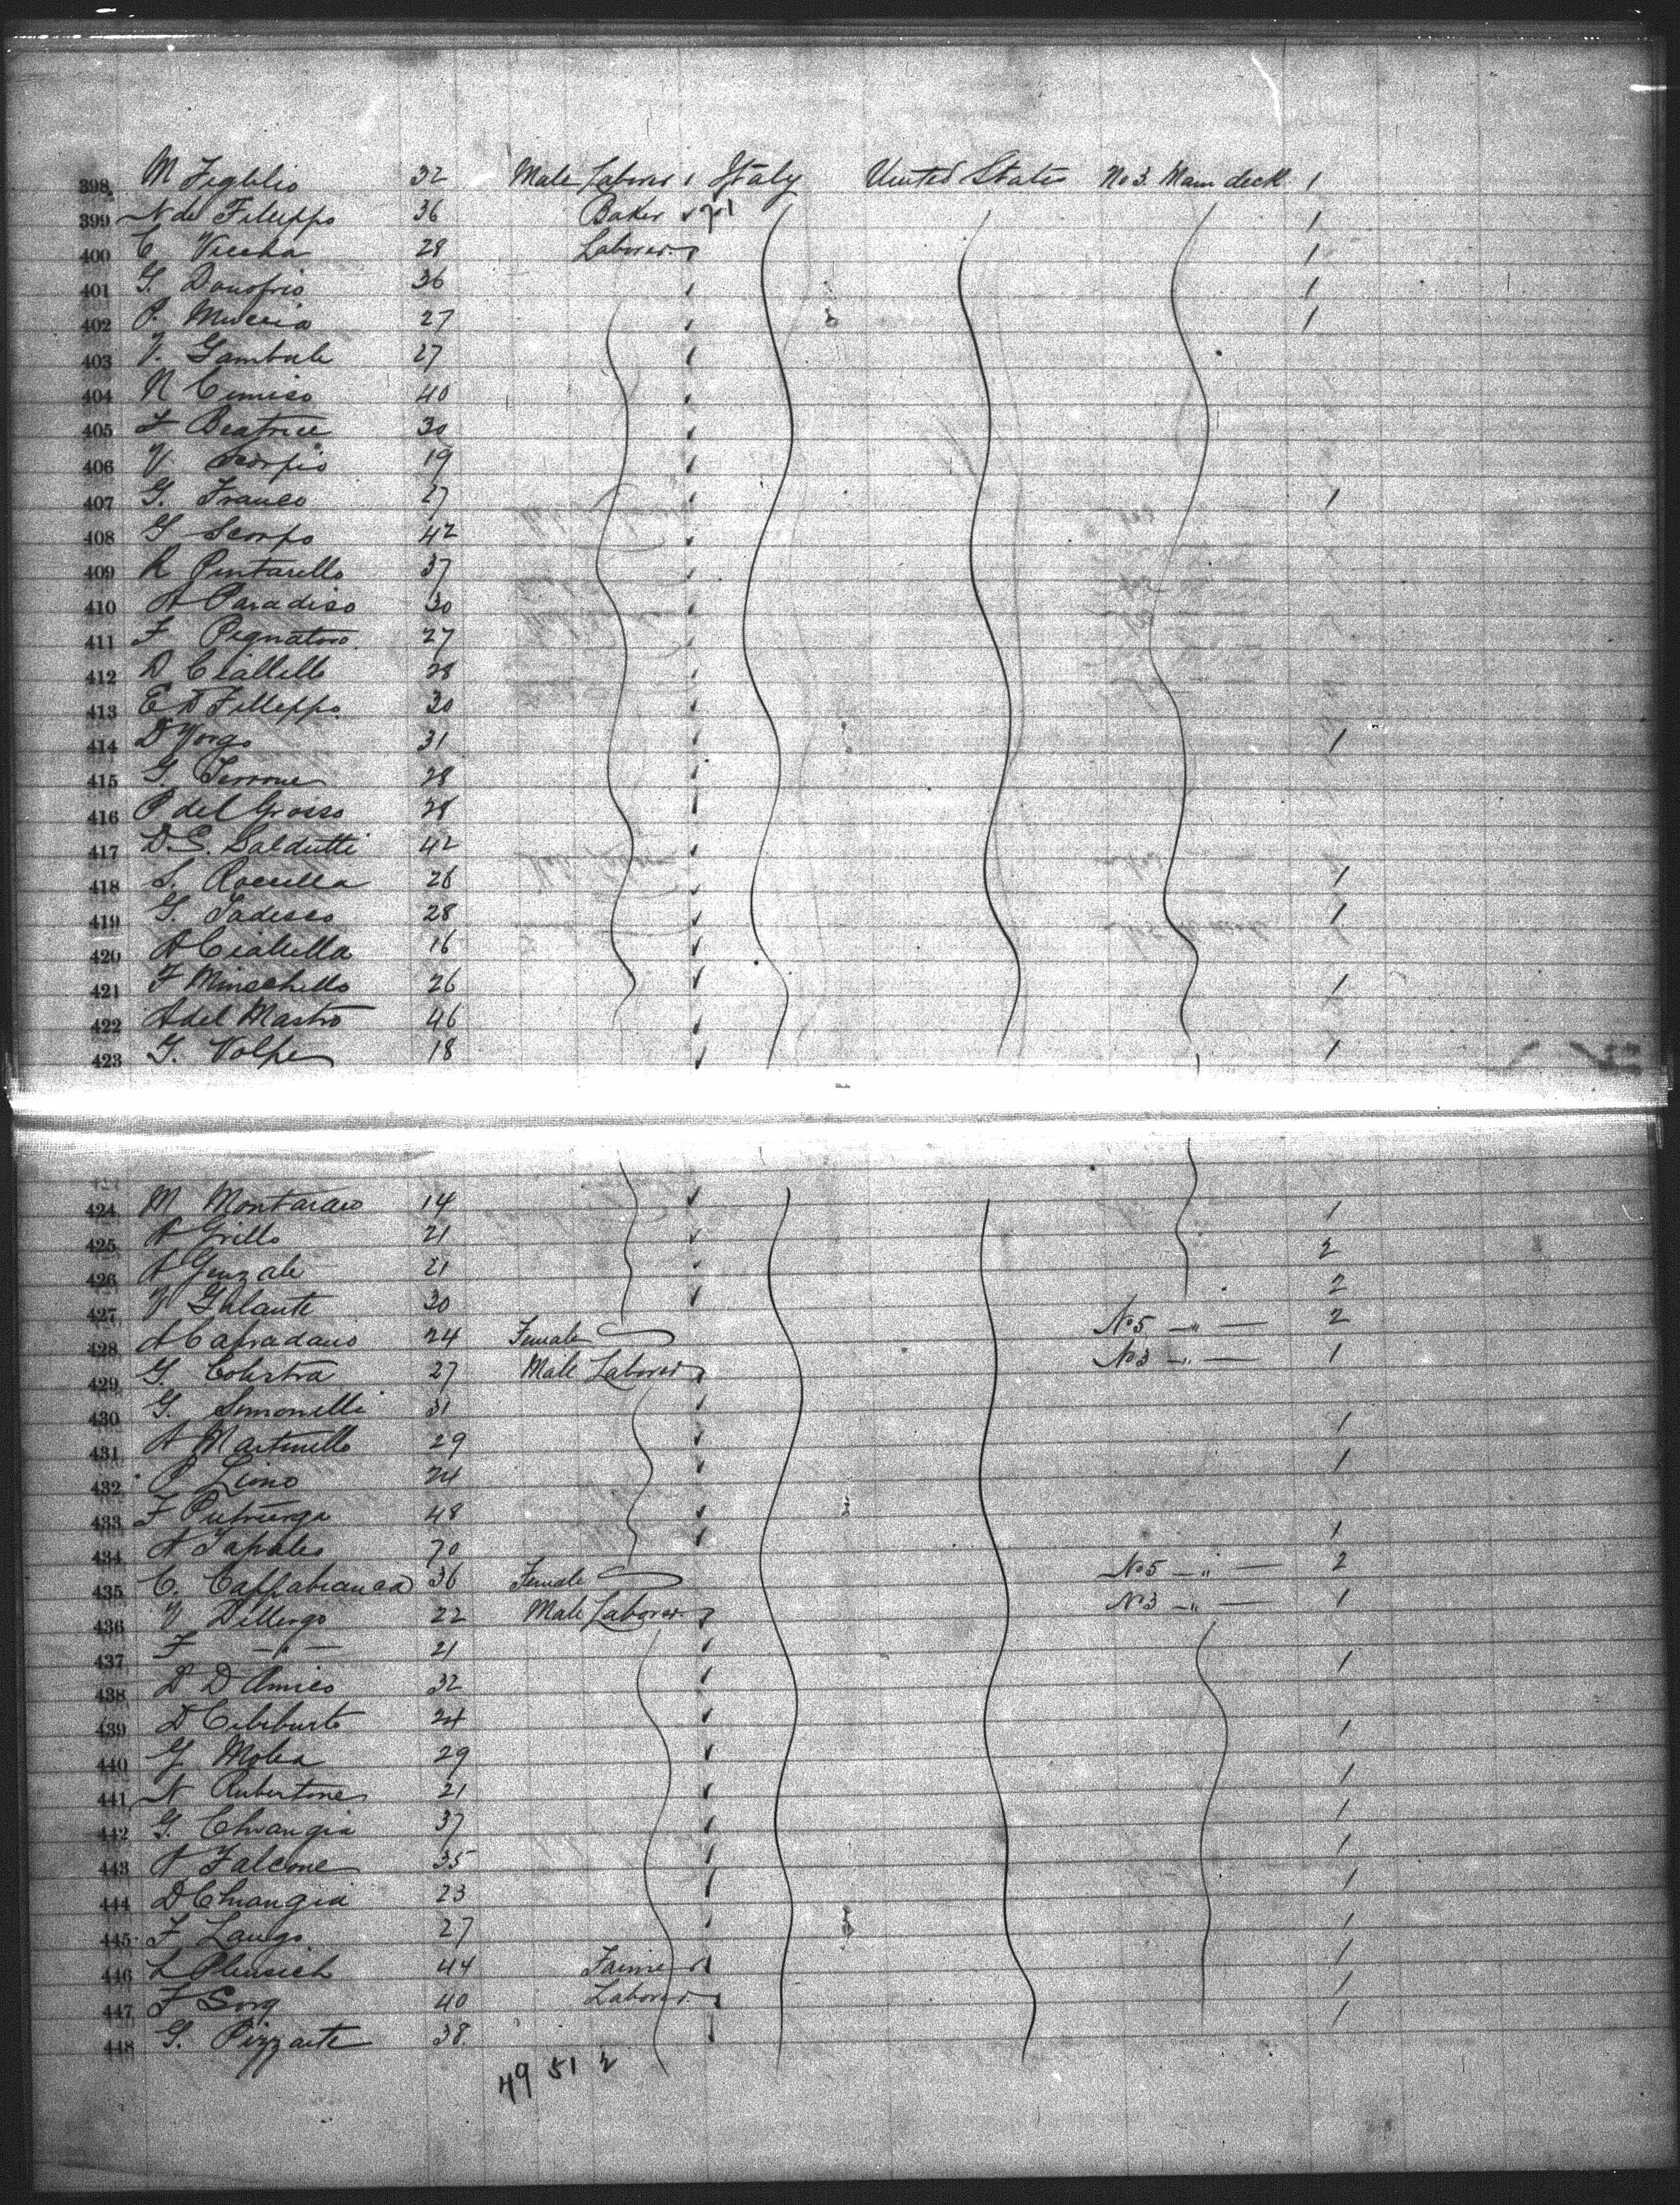 398 M Figlilio 32 Male Laborer Italy United States No 3. Main deck 1
399 N de Filleppo 36 Baker 1
400 C Veccha 28 Laborer 1
401 G. Donofrio 36 1
402 P. Muccia 27 1
403 V. Gambale 27
404 N Cimiso 40
405 F Beatrice 30
406 V Scorpio 19
407 G. Franco 27 1
408 G Scorpo 42
409 R Pintarello 37
410 A Paradiso 30
411 F Pignatoro 27
412 D Ciallello 28
413 E D Filleppo 30
414 D Yorgo 31 1
415 G. Terrone 28
416 P del Grosso 28
417 D. G. Saldutti 42
418 S. Roccella 26 1
419 G. Tadesco 28 1
420 A Cialella 16
421 F Minschello 26 1
422 A del Mastro 46
423 G. Volpe 18 1
424 M Montarao 14 1
425 A Grillo 21 2
426 A Genzale 21 2
427 V Galante 30 2
428 A Capradano 24 Female No 5 — " — 1
429 G. Colistra 27 Male Laborer No 3 — " —
430 G. Simonelli 31 1
431 A Martinello 29 1
432 P Liono 24
433 F Putrurga 48 1
434 A Tapales 70 2
435 C. Caffabianca 36 Female No 5 — " — 1
436 V Dillergo 22 Male Laborer No 3 — " —
437 F — " — 21 1
438 D D Amico 32
439 D Ciliburto 24 1
440 G Molea 29 1
441 N Rubertone 21 1
442 G. Chiangia 37 1
443 A Falcone 35 1
444 D Chiangia 23 1
445 F Laurgo 27 1
446 L Plensich 44 1
447 F Sorg 40 Laborer 1
448 G. Pizzante 38
49 51 2